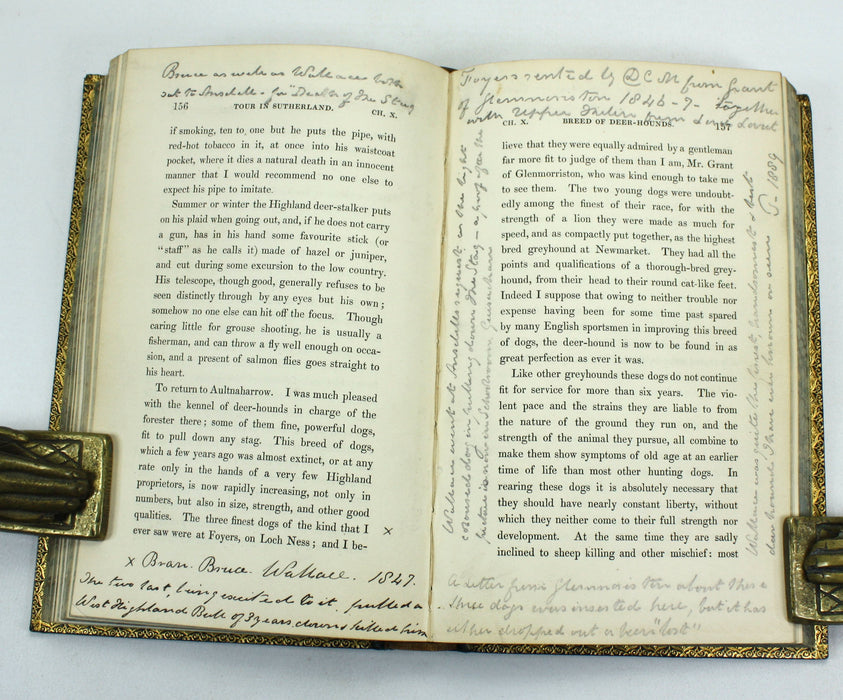 Bruce as well as Wallace both
sat to Ansdell - for "Death of the Stag
156 TOUR IN SUTHERLAND. CH. X.
if smoking, ten to one but he puts the pipe, with
red-hot tobacco in it, at once into his waistcoat
pocket, where it dies a natural death in an innocent
manner that I would recommend no one else to
expect his pipe to imitate.
Summer or winter the Highland deer-stalker puts
on his plaid when going out, and, if he does not carry
a gun, has in his hand some favourite stick (or
"staff" as he calls it) made of hazel or juniper,
and cut during some excursion to the low country.
His telescope, though good, generally refuses to be
seen distinctly through by any eyes but his own;
somehow no one else can hit off the focus. Though
caring little for grouse shooting, he is usually a
fisherman, and can throw a fly well enough on occa-
sion, and a present of salmon flies goes straight to
his heart.
To return to Aultnaharrow. I was much pleased
with the kennel of deer-hounds in charge of the
forester there; some of them fine, powerful dogs,
fit to pull down any stag. This breed of dogs,
which a few years ago was almost extinct, or at any
rate only in the hands of a very few Highland
proprietors, is now rapidly increasing, not only in
numbers, but also in size, strength, and other good
qualities. The three finest dogs of the kind that I x
ever saw were at Foyers, on Loch Ness; and I be-
x Bran. Bruce. Wallace. 1847.
The two last, being excited to it, pulled a
West Highland Bull of 3 years, down & killed him
Foyers rented by D C M from Grant
of Glenmoriston 1846-7- together
with Upper from Lord Lovat
CH. X. BREED OF DEER-HOUNDS. 157
lieve that they were equally admired by a gentleman
far more fit to judge of them than I am, Mr. Grant
of Glenmorriston, who was kind enough to take me
to see them. The two young dogs were undoubt-
edly among the finest of their race, for with the
strength of a lion they were made as much for
speed, and as compactly put together, as the highest
bred greyhound at Newmarket. They had all the
points and qualifications of a thorough-bred grey-
hound, from their head to their round cat-like feet.
Indeed I suppose that owing to neither trouble nor
expense having been for some time past spared
by many English sportsmen in improving this breed
of dogs, the deer-hound is now to be found in as
great perfection as ever it was.
Like other greyhounds these dogs do not continue
fit for service for more than six years. The vio-
lent pace and the strains they are liable to from
the nature of the ground they run on, and the
strength of the animal they pursue, all combine to
make them show symptoms of old age at an earlier
time of life than most other hunting dogs. In
rearing these dogs it is absolutely necessary that
they should have nearly constant liberty, without
which they neither come to their full strength nor
development. At the same time they are sadly
inclined to sheep killing and other mischief: most
Wallace went at Ansdell's request as the light
coloured dog in pulling down the Stag - a proof after the
picture is now in Schoolroom
Wallace was quite the finest, handsomest & best
deerhound I have ever known or seen J- 1889
A Letter from Glenmoriston about these
three dogs was inserted here, but it has
either dropped out or been "lost"